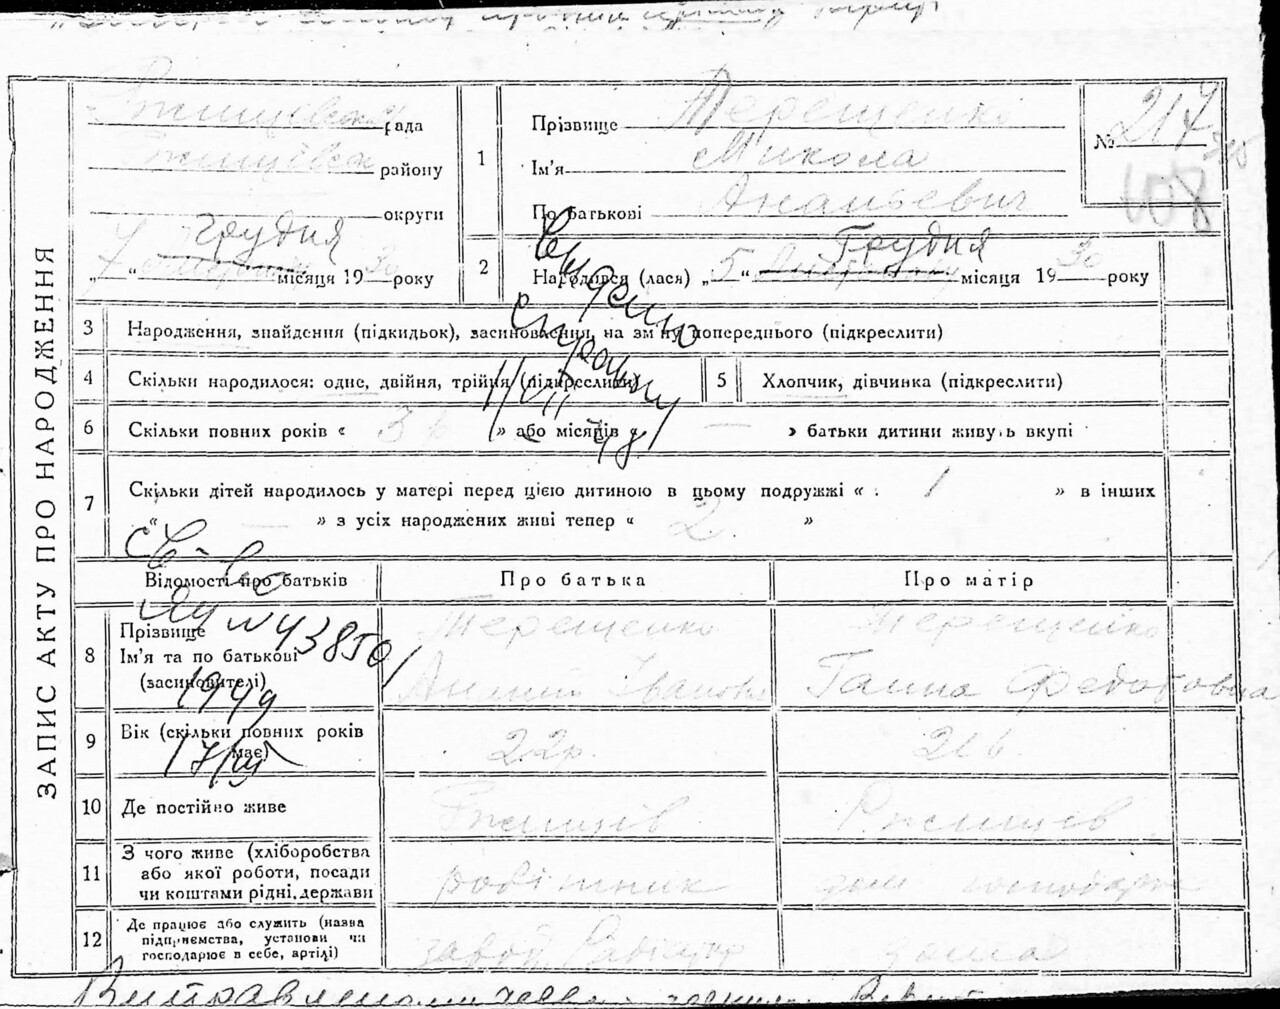 ЗАПИС АКТУ ПРО НАРОДЖЕННЯ
Ржищівська рада
Ржищівськ району
округи
грудня
„7“ місяця 1930 року
1
Прізвище Терещенко
Ім'я Микола
По батькові Ананьевич
№ 217
608
2
Грудня
Народився (лася) „5“ місяця 1930 року
3 Народження, знайдення (підкидьок), засиновлення, на зміну попереднього (підкреслити)
4 Скільки народилося: одне, двійня, трійня (підкреслити)
5 Хлопчик, дівчинка (підкреслити)
6 Скільки повних років « 3 р » або місяців « — » батьки дитини живуть вкупі
7 Скільки дітей народилось у матері перед цією дитиною в цьому подружжі « 1 » в інших
« — » з усіх народжених живі тепер « 2 »
Видано
справку
11/VII 48
св-во
№ 43850
1949
17/VII
Відомості про батьків Про батька Про матір
8 Прізвище
Ім'я та по батькові
(засиновителі)
Терещенко
Ананий Іванов
Терещенко
Ганна Федоровна
9 Вік (скільки повних років
має)
22р. 21р.
10 Де постійно живе Ржищів Ржищев
11 З чого живе (хліборобства
або якої роботи, посади
чи коштами рідні, держави
робітник дом господарка
12 Де працює або служить (назва
підприємства, установи чи
господарює в себе, артілі)
завод дома